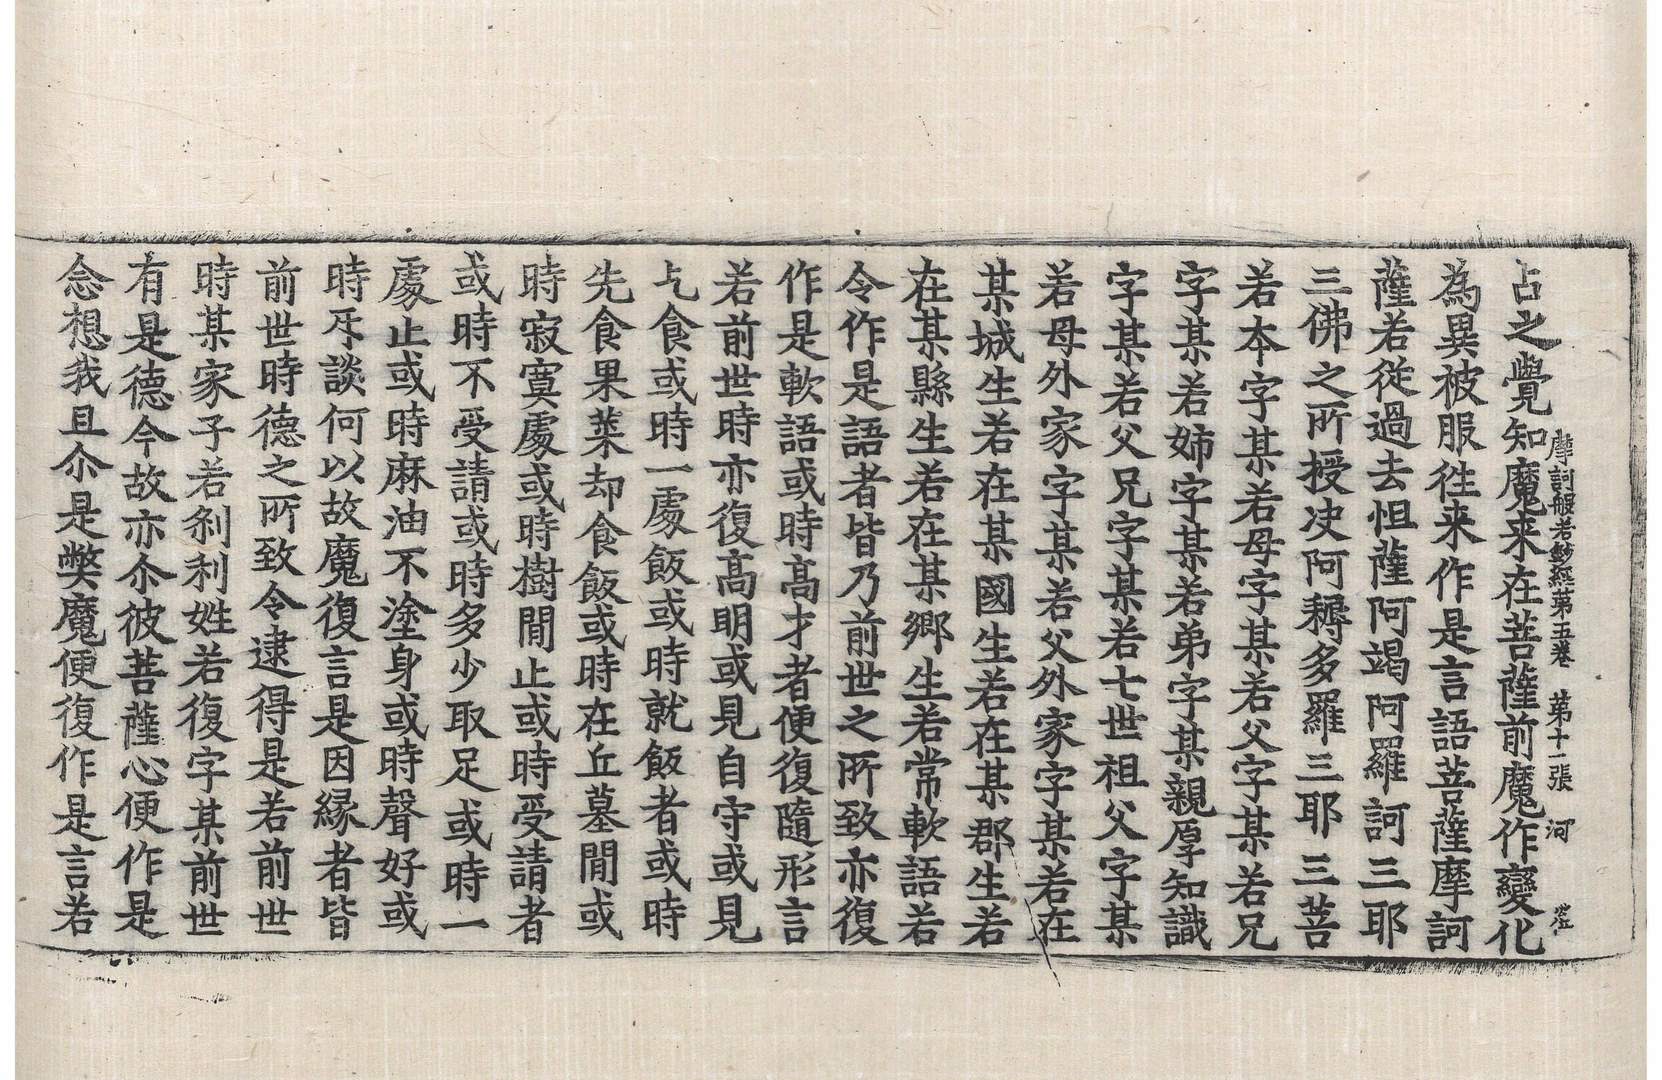 摩訶般若鈔經第五卷　第十一張　河
占之覺知魔来在菩薩前魔作變化
為異被服徃来作是言語菩薩摩訶
薩若從過去怛薩阿竭阿羅訶三耶
三佛之所授决阿耨多羅三耶三菩
若本字某若母字某若父字某若兄
字某若姉字某若弟字某親厚知識
字某若父兄字某若七世祖父字某
若母外家字某若父外家字某若在
某城生若在某國生若在某郡生若
在某縣生若在某鄉生若常軟語若
令作是語者皆乃前世之所致亦復
作是軟語或時高才者便復隨形言
若前世時亦復高明或見自守或見
乞食或時一處飯或時就飯者或時
先食果菜却食飯或時在丘墓間或
時寂寞處或時樹間止或時受請者
或時不受請或時多少取足或時一
處止或時麻油不塗身或時聲好或
時巧談何以故魔復言是因緣者皆
前世時德之所致令逮得是若前世
時某家子若剎利姓若復字某前世
有是德今故亦尒彼菩薩心便作是
念想我且尒是弊魔便復作是言若